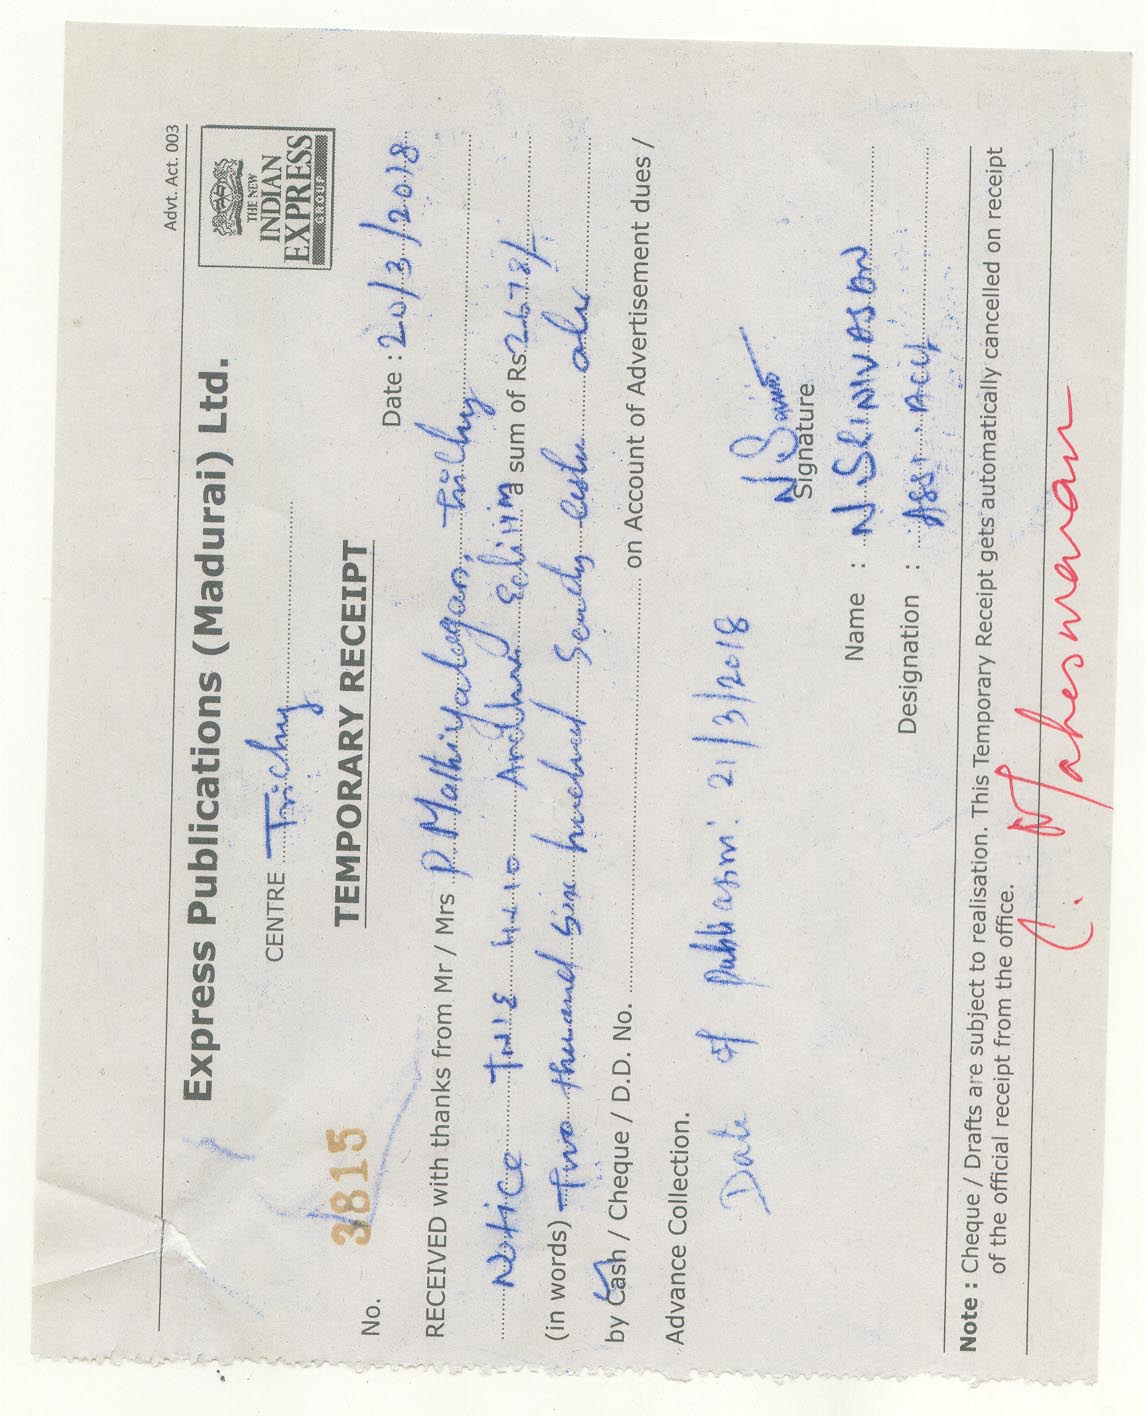 Advt. Act. 003
Express Publications (Madurai) Ltd.
THE NEW
INDIAN
EXPRESS
GROUP
CENTRE Trichy
TEMPORARY RECEIPT
No. 3815
Date : 20/3/2018
RECEIVED with thanks from Mr / Mrs P. Mathiyalagan, Trichy
Notice TNIE 4x10 Andhra Edition a sum of Rs 2678/-
(in words) Two thousand Six hundred Seventy eight only
by Cash / Cheque / D.D. No. on Account of Advertisement dues /
Advance Collection.
Date of publication: 21/3/2018
Signature
Name : N SRINIVASAN
Designation : Asst. Acct
Note : Cheque / Drafts are subject to realisation. This Temporary Receipt gets automatically cancelled on receipt
of the official receipt from the office.
C. Maheswaran